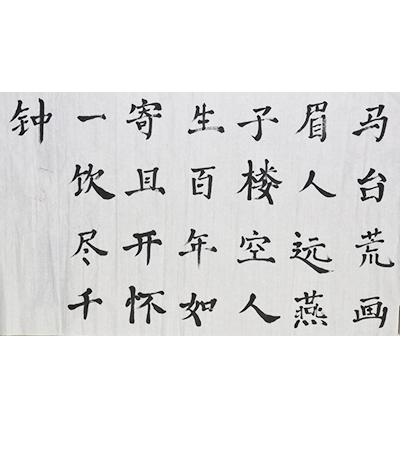 马台荒画
眉人远燕
子楼空人
生百年如
寄且开怀
一饮尽千
钟